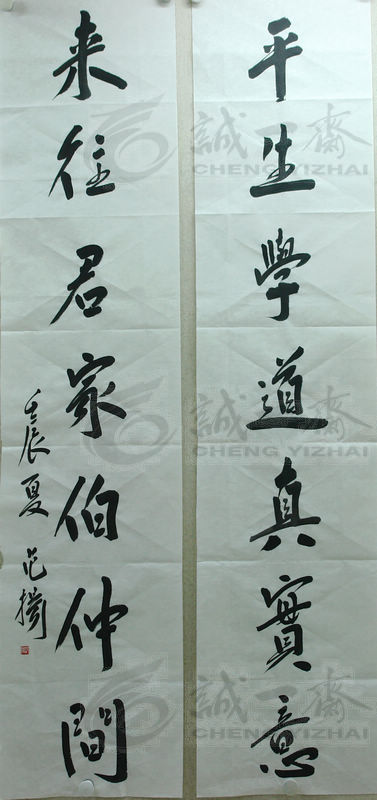 平生學道真實意
来往君家伯仲間
壬辰夏 范揚
誠一齋
CHENG YIZHAI
誠一齋
CHENG YIZHAI
誠一齋
CHENG YIZHAI